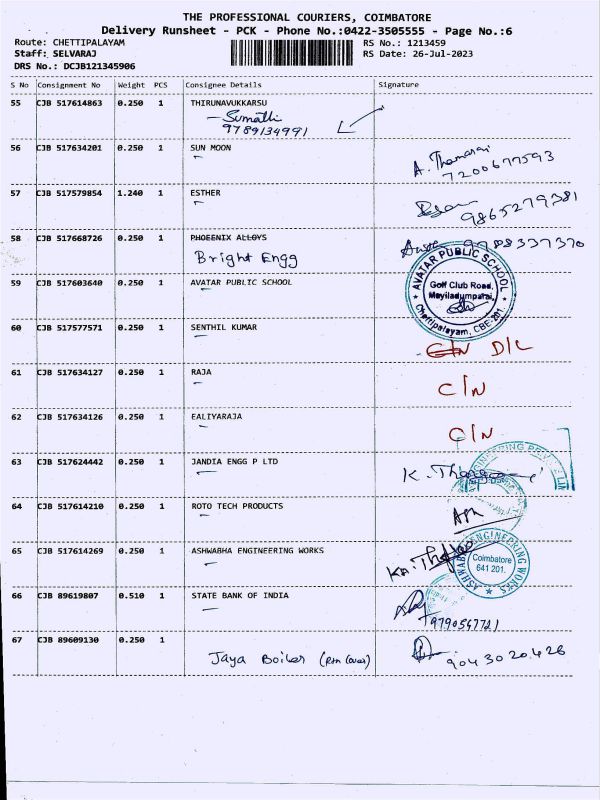 THE PROFESSIONAL COURIERS, COIMBATORE
Delivery Runsheet - PCK - Phone No.:0422-3505555 - Page No.:6
Route: CHETTIPALAYAM RS No.: 1213459
Staff: SELVARAJ RS Date: 26-Jul-2023
DRS No.: DCJB121345906
S No Consignment No Weight PCS Consignee Details Signature
55 CJB 517614863 0.250 1 THIRUNAVUKKARSU
Sumathi
9789134991
56 CJB 517634201 0.250 1 SUN MOON
A. Thamarai
7200677593
57 CJB 517579854 1.240 1 ESTHER
9865279381
58 CJB 517668726 0.250 1 PHOEENIX ALLOYS
Bright Engg
9788337370
59 CJB 517603640 0.250 1 AVATAR PUBLIC SCHOOL
AVATAR PUBLIC SCHOOL
Golf Club Road,
Mayiladumparai,
Chettipalayam, CBE-201.
60 CJB 517577571 1 0.250 1 SENTHIL KUMAR
C/N D/L
61 CJB 517634127 0.250 1 RAJA
C/N
62 CJB 517634126 0.250 1 EALIYARAJA
C/N
63 CJB 517624442 0.250 1 JANDIA ENGG P LTD
64 CJB 517614210 0.250 1 ROTO TECH PRODUCTS
65 CJB 517614269 0.250 1 ASHWABHA ENGINEERING WORKS
ASHWABHA ENGINEERING WORKS
Coimbatore
641 201.
66 CJB 89619807 0.510 1 STATE BANK OF INDIA
9790567721
67 CJB 89609130 0.250 1
Jaya Boiler
9043020426